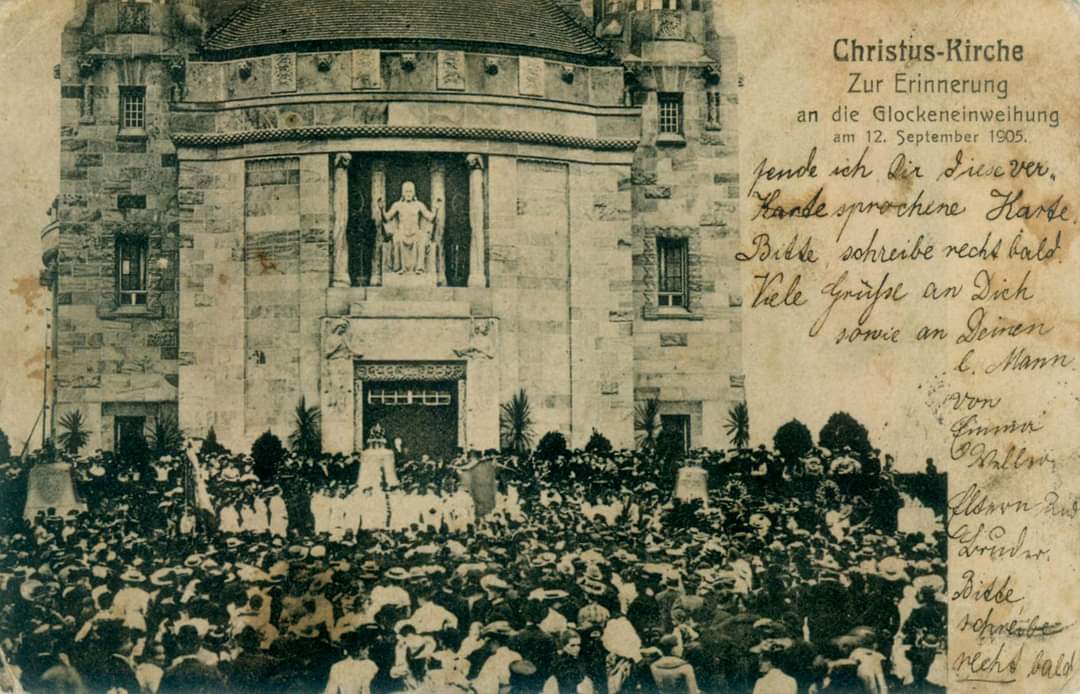 Christus-Kirche
Zur Erinnerung
an die Glockeneinweihung
am 12. September 1905.
sende ich Dir diese ver-
Karte sprochene Karte.
Bitte schreibe recht bald.
Viele Grüße an Dich
sowie an Deinen
l. Mann
von
Emma
Eltern und
Bruder.
Bitte
schreibe
recht bald